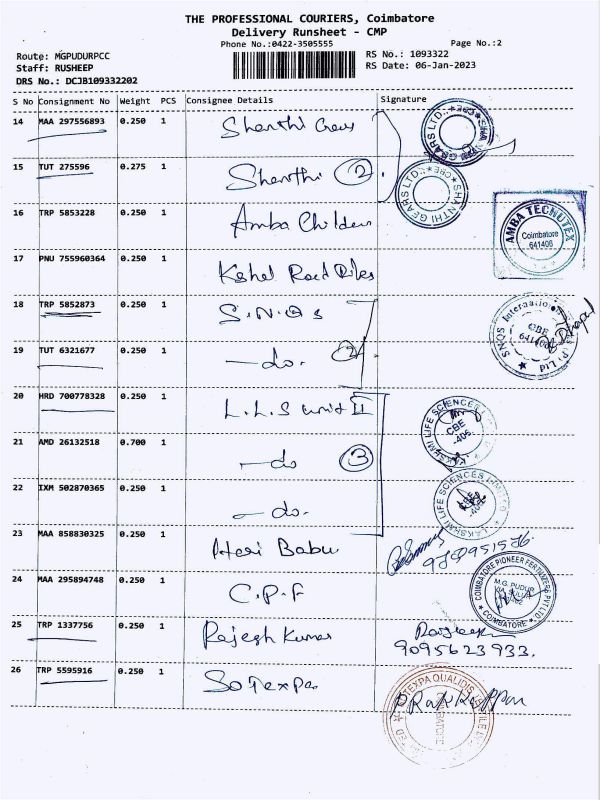 THE PROFESSIONAL COURIERS, Coimbatore
Delivery Runsheet - CMP
Phone No.:0422-3505555
Page No.:2
Route: MGPUDURPCC
RS No.: 1093322
Staff: RUSHEEP
RS Date: 06-Jan-2023
DRS No.: DCJB109332202
S No Consignment No Weight PCS Consignee Details Signature
14 MAA 297556893 0.250 1 Shanthi Gears
SHANTHI GEARS LTD., CBE
15 TUT 275596 0.275 1 Shanthi 2
SHANTHI GEARS LTD., CBE
16 TRP 5853228 0.250 1 Amba Childen
AMBA TECNUTEX
Coimbatore
641408
17 PNU 755960364 0.250 1
18 TRP 5852873 0.250 1 S.N.Q.S
SNQS Internationals P Ltd
CBE
19 TUT 6321677 0.250 1 -do. 2
20 HRD 700778328 0.250 1 L.L.S unit II
LAKSHMI LIFE SCIENCES LIMITED
CBE
-406.
21 AMD 26132518 0.700 1 -do 3
22 IXM 502870365 0.250 1 -do.
LAKSHMI LIFE SCIENCES LIMITED
23 MAA 858830325 0.250 1 Hari Babu
24 MAA 295894748 0.250 1 C.P.F
COIMBATORE PIONEER FERTILIZERS PVT LTD
M.G. PUDUR
COIMBATORE
25 TRP 1337756 0.250 1 Rajesh Kumar
9095623933.
26 TRP 5595916 0.250 1 SoTexpa